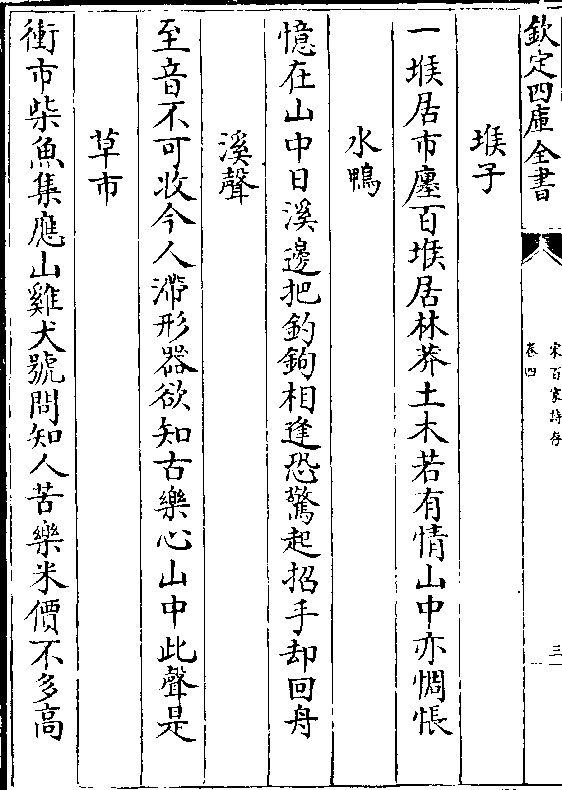 欽定四庫全書
宋百家詩存
卷四
三
堠子
一堠居市廛百堠居林莽土木若有情山中亦惆悵
水鴨
憶在山中日溪邊把釣鉤相逢恐驚起招手却回舟
溪聲
至音不可收今人滯形器欲知古樂心山中此聲是
草市
衝市柴魚集應山雞犬號問知人苦樂米價不多高